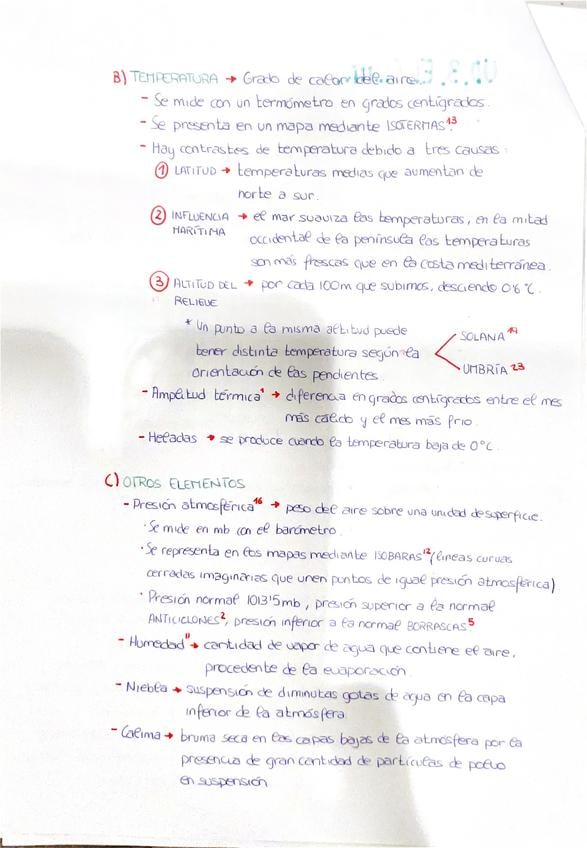 B) TEMPERATURA → Grado de calor del aire.
- Se mide con un termómetro en grados centígrados.
- Se presenta en un mapa mediante ISOTERMAS.¹³
- Hay contrastes de temperatura debido a tres causas:
① LATITUD → temperaturas medias que aumentan de
norte a sur.
② INFLUENCIA → el mar suaviza las temperaturas, en la mitad
MARÍTIMA occidental de la península las temperaturas
son más frescas que en la costa mediterránea.
③ ALTITUD DEL → por cada 100m que subimos, desciende 0'6 °C.
RELIEVE
* Un punto a la misma altitud puede
SOLANA¹⁴
tener distinta temperatura según la
UMBRÍA²³
orientación de las pendientes.
- Amplitud térmica¹ → diferencia en grados centígrados entre el mes
más cálido y el mes más frío.
- Heladas → se produce cuando la temperatura baja de 0°C.
C) OTROS ELEMENTOS
- Presión atmosférica¹⁶ → peso del aire sobre una unidad de superficie.
· Se mide en mb con el barómetro.
· Se representa en los mapas mediante ISOBARAS¹² (líneas curvas
cerradas imaginarias que unen puntos de igual presión atmosférica)
· Presión normal 1013'5mb, presión superior a la normal
ANTICICLONES², presión inferior a la normal BORRASCAS.⁵
- Humedad¹¹ → cantidad de vapor de agua que contiene el aire,
procedente de la evaporación.
- Niebla → suspensión de diminutas gotas de agua en la capa
inferior de la atmósfera.
- Calima → bruma seca en las capas bajas de la atmósfera por la
presencia de gran cantidad de partículas de polvo
en suspensión